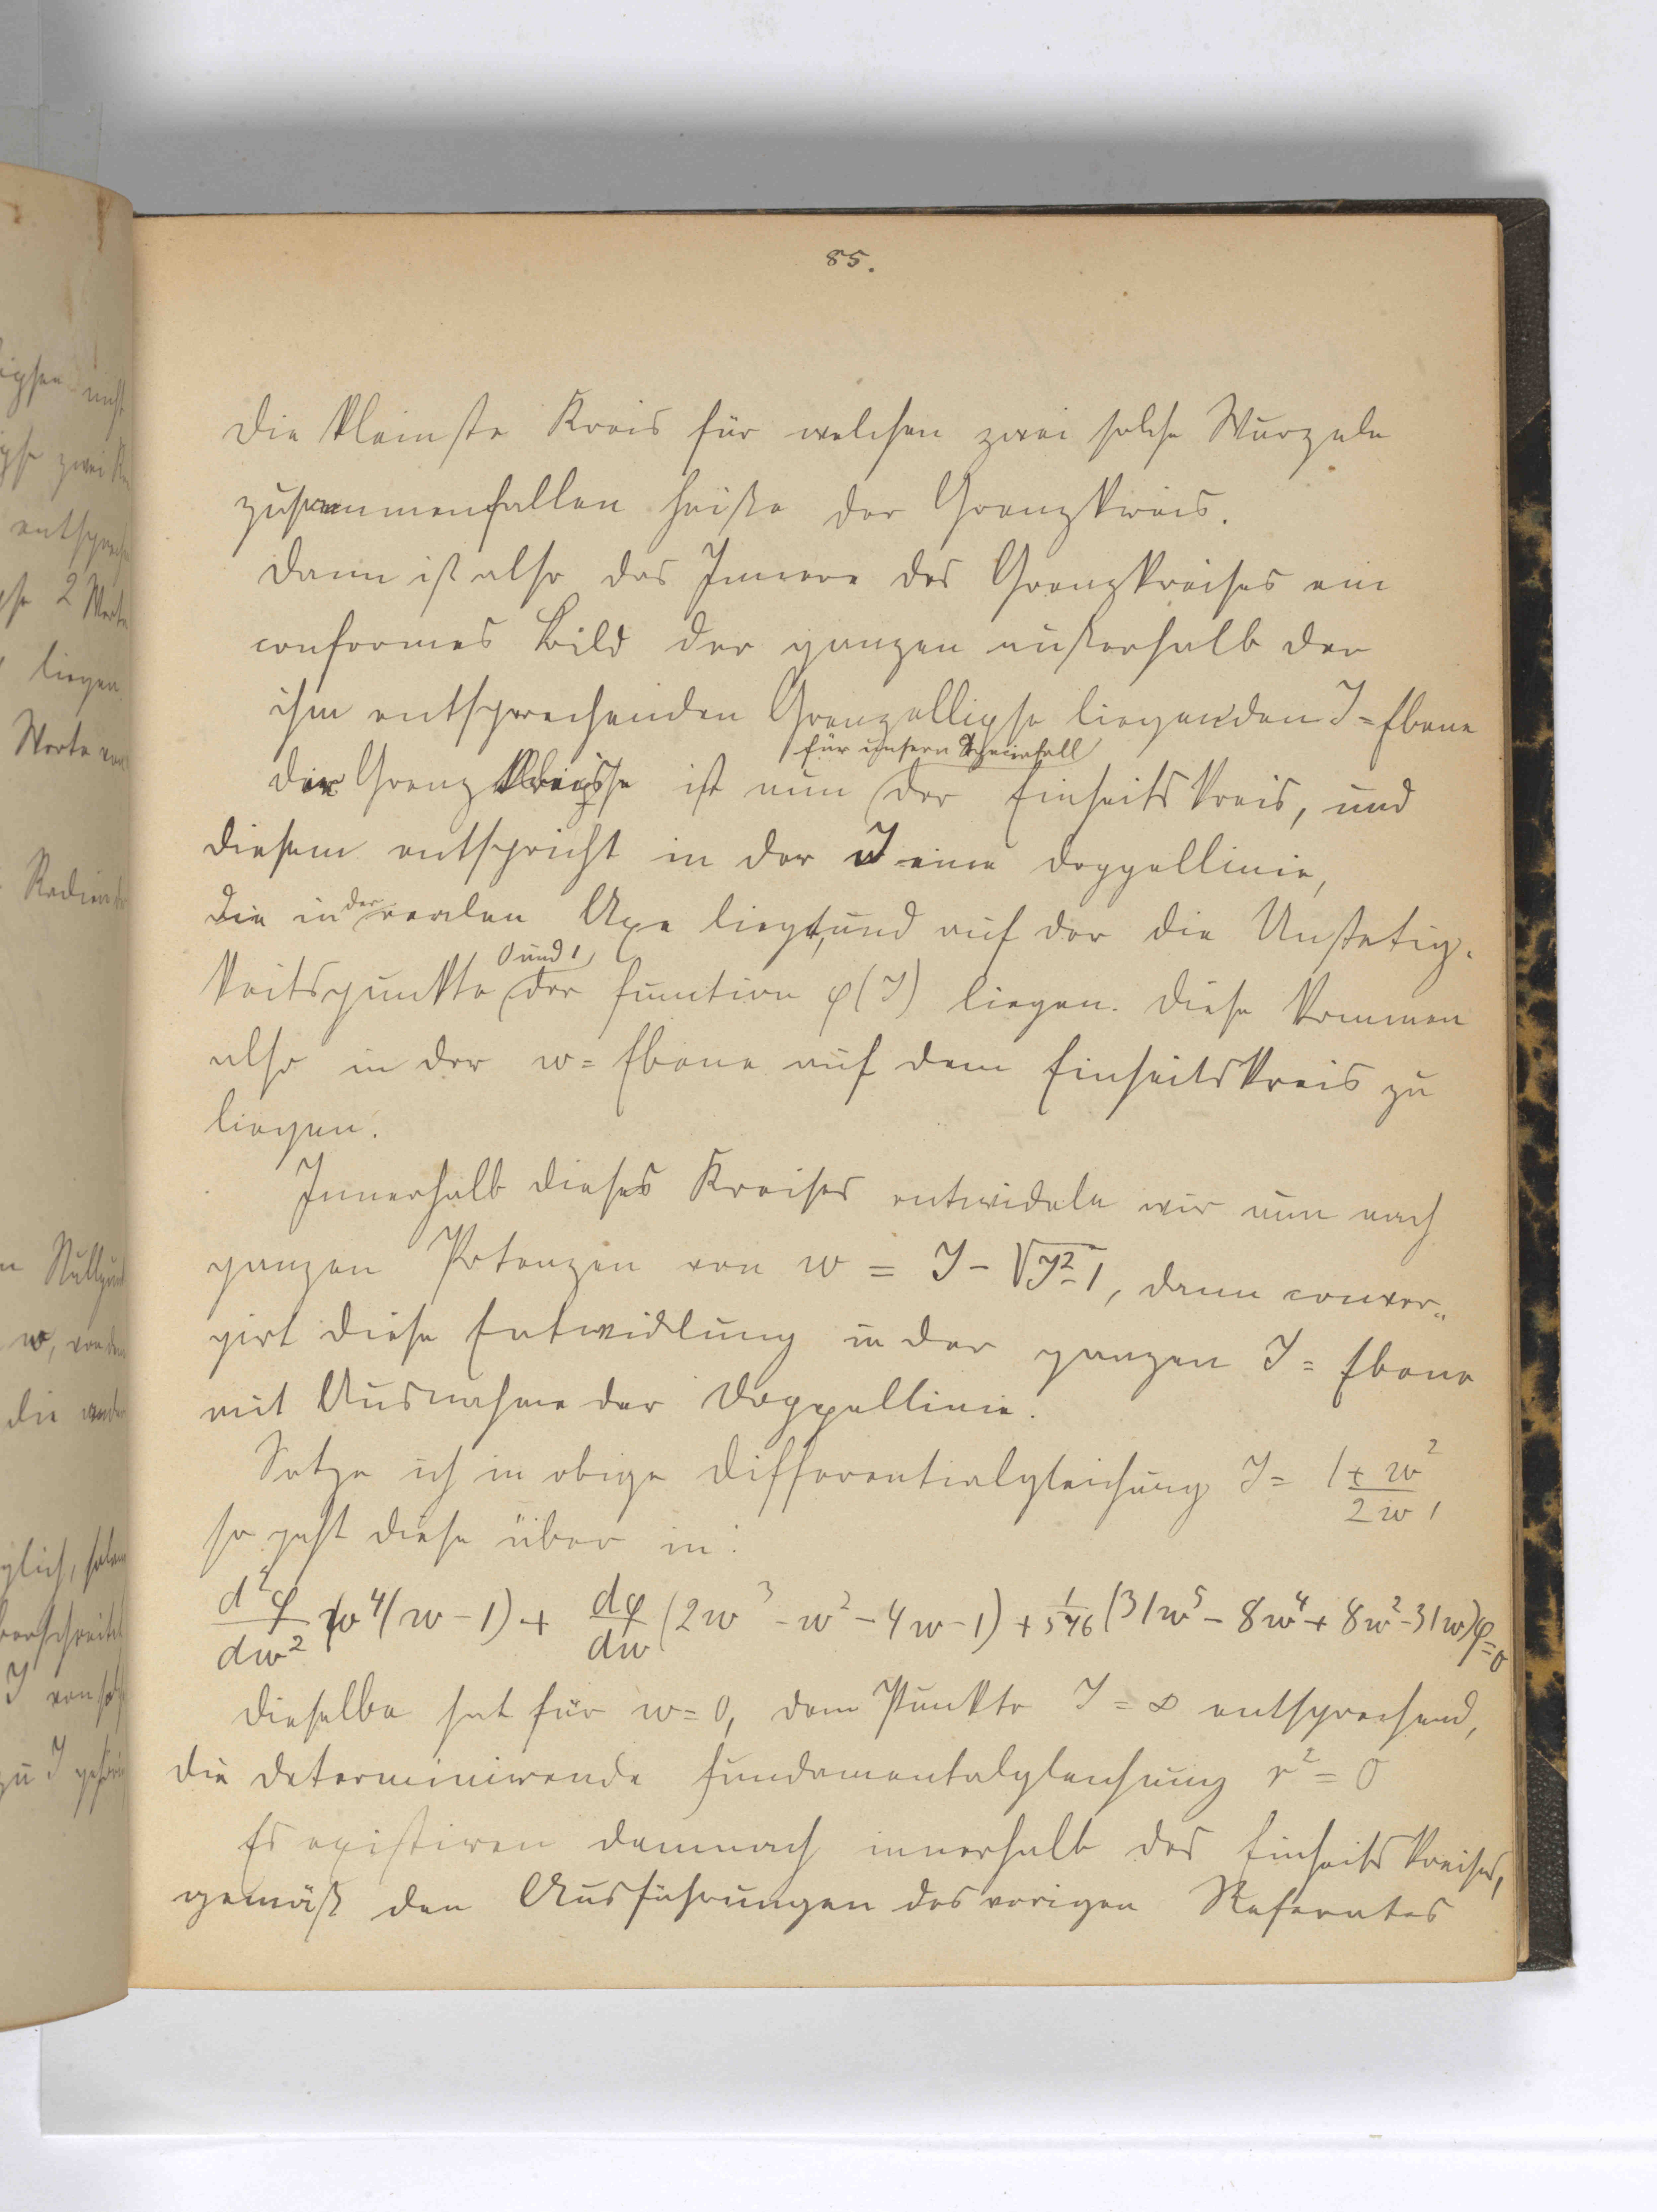 85.
Die kleinste Kreis für welchen zwei solche Wurzeln
zusammenfallen heiße der Grenzkreis.
Dann ist also das Innere des Grenzkreises ein
conformes Bild der ganzen außerhalb der
ihm entsprechenden Grenzellipse liegenden J=Ebene
für unsern Specialfall
Der Grenz ist nun der Einheitskreis, und
diesem entspricht in der J eine Doppellinie,
der
die in realen Axe liegt, und auf der die Unstetig-
0 und 1
keitspunkte der Function φ(J) liegen. Diese kommen
also in der w=Ebene auf dem Einheitskreis zu
liegen.
Innerhalb dieses Kreises entwickeln wir nun nach
ganzen Potenzen von w = J - √J²-1, dann conver-
girt diese Entwicklung in der ganzen J=Ebene
mit Ausnahme der Doppellinie.
Setze ich in obige Differentialgleichung J = 1+w²/2w,
so geht diese über in:
d²φ/dw² w⁴(w-1) + dφ/dw (2w³-w²-4w-1) + (31w⁵-8w⁴+8w²-31w)φ=0
Dieselbe hat für w=0, dem Punkte J=∞ entsprechend,
die determinirende Fundamentalgleichung r²=0
Es existiren demnach innerhalb des Einheitskreises,
gemäß den Ausführungen des vorigen Referates